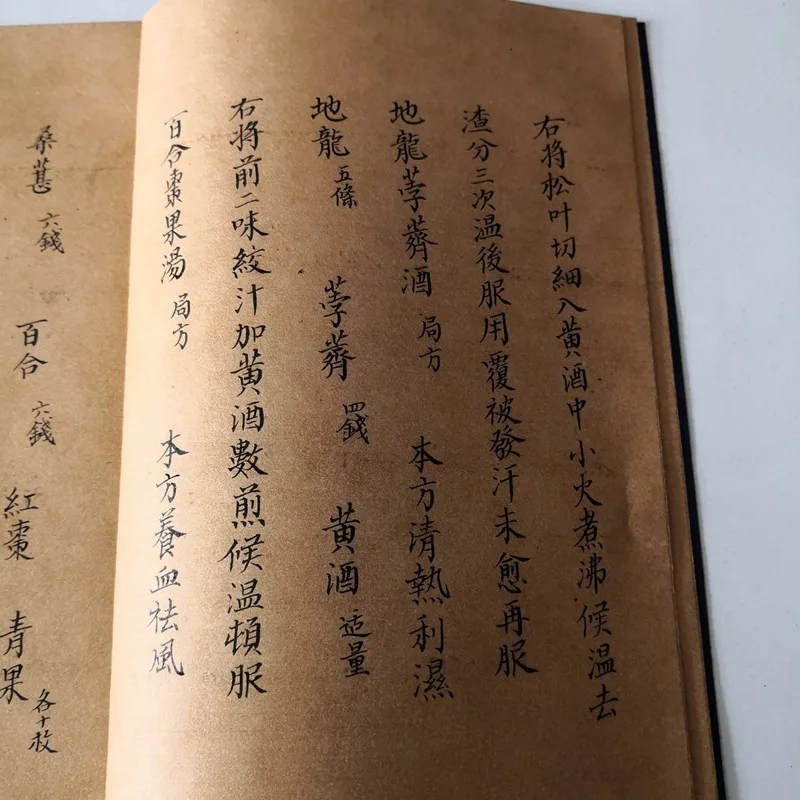 右将松叶切細入黄酒中小火煮沸候温去
渣分三次温後服用覆被發汗未愈再服
地龍荸薺酒 局方 本方清熱利濕
地龍 五條 荸薺 四錢 黄酒 适量
右将前二味絞汁加黄酒數煎候温頓服
百合棗果湯 局方 本方養血祛風
桑葚 六錢 百合 六錢 紅棗 青果 各十枚